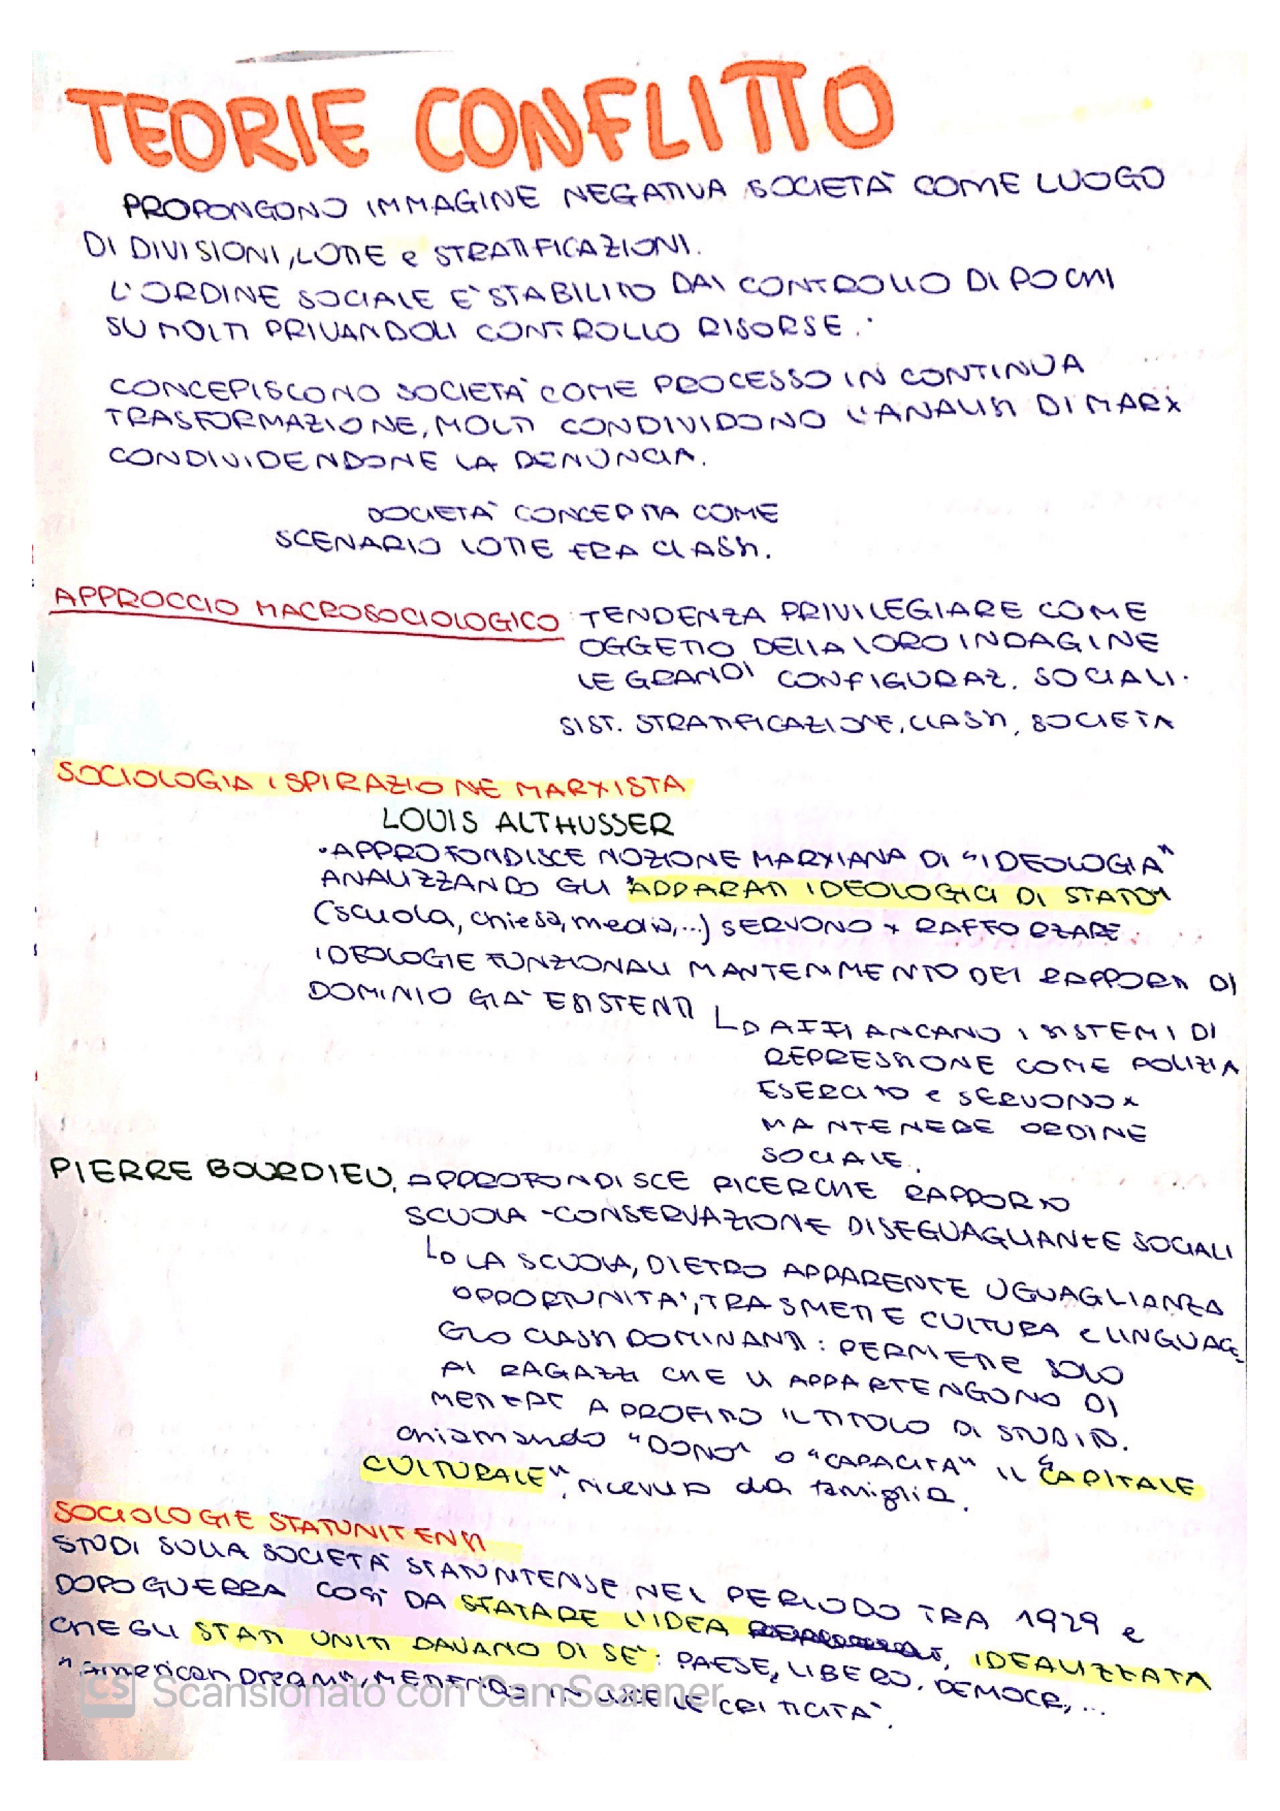 TEORIE CONFLITTO
PROPONGONO IMMAGINE NEGATIVA SOCIETÀ COME LUOGO
DI DIVISIONI, LOTTE e STRATIFICAZIONI.
L'ORDINE SOCIALE E' STABILITO DAL CONTROLLO DI POCHI
SU MOLTI PRIVANDOLI CONTROLLO RISORSE.
CONCEPISCONO SOCIETA' COME PROCESSO IN CONTINUA
TRASFORMAZIONE, MOLTI CONDIVIDONO L'ANALISI DI MARX
CONDIVIDENDONE LA DENUNCIA.
SOCIETA' CONCEPITA COME
SCENARIO LOTTE FRA CLASSI.
APPROCCIO MACROSOCIOLOGICO: TENDENZA PRIVILEGIARE COME
OGGETTO DELLA LORO INDAGINE
LE GRANDI CONFIGURAZ. SOCIALI.
SIST. STRATIFICAZIONE, CLASSI, SOCIETÀ
SOCIOLOGIA ISPIRAZIONE MARXISTA
LOUIS ALTHUSSER
•APPROFONDISCE NOZIONE MARXIANA DI "IDEOLOGIA"
ANALIZZANDO GLI "APPARATI IDEOLOGICI DI STATO"
(scuola, chiesa, media,...) SERVONO x RAFFORZARE
IDEOLOGIE FUNZIONALI MANTENIMENTO DEI RAPPORTI DI
DOMINIO GIA' ESISTENTI
AFFIANCANO I SISTEMI DI
REPRESSIONE COME POLIZIA
ESERCITO e SERVONO x
MANTENERE ORDINE
SOCIALE.
PIERRE BOURDIEU, APPROFONDISCE RICERCHE RAPPORTO
SCUOLA - CONSERVAZIONE DISEGUAGLIANZE SOCIALI
LA SCUOLA, DIETRO APPARENTE UGUAGLIANZA
OPPORTUNITA', TRASMETTE CULTURA e LINGUAG
GIO CLASSI DOMINANTI: PERMETTE SOLO
AI RAGAZZI CHE VI APPARTENGONO DI
METTERE A PROFITTO IL TITOLO DI STUDIO.
chiamando "DONO" O "CAPACITA" IL "CAPITALE
CULTURALE", ricevuto da famiglia.
SOCIOLOGIE STATUNITENSI
STUDI SULLA SOCIETÀ STATUNITENSE NEL PERIODO TRA 1929 e
DOPOGUERRA COSÌ DA SFATARE L'IDEA IDEALIZZATA
CHE GLI STATI UNITI DAVANO DI SE': PAESE, LIBERO, DEMOCR, ...
"american Dream", METTENDO IN LUCE LE CRITICITA'.
CS Scansionato con CamScanner